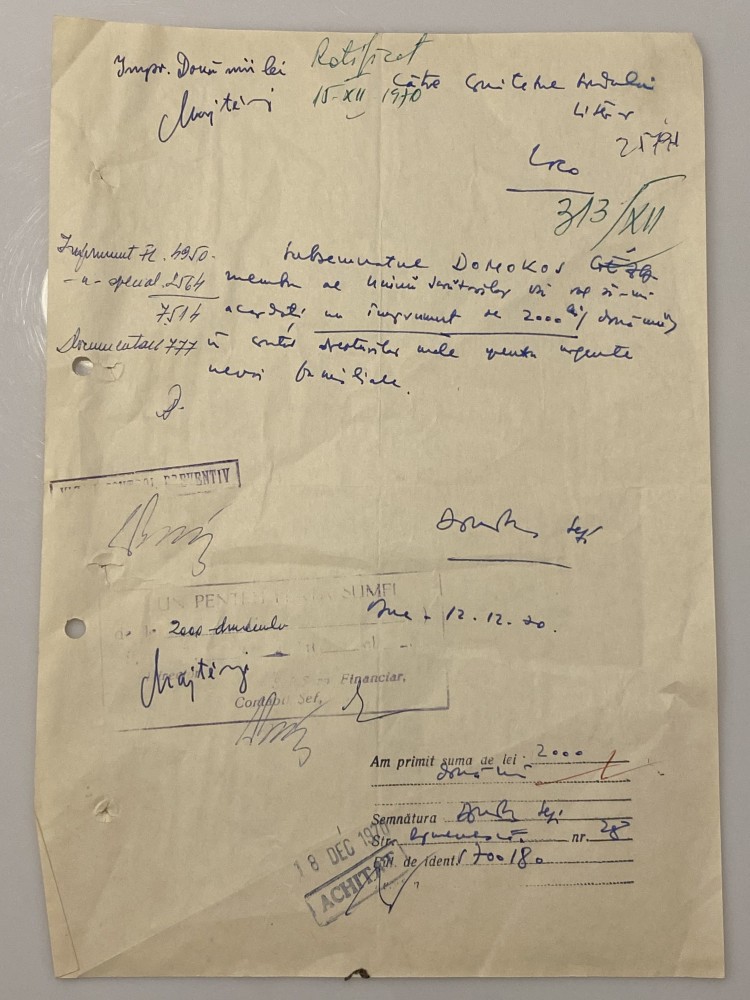 Impr. Două mii lei
Ratificat
15-XII 1970
Către Comitetul Fondului
Literar
Loco
313/XII
Subsemnatul DOMOKOS GÉZA
membru al Uniunii Scriitorilor vă rog să-mi
acordați un împrumut de 2000 lei (două mii)
în contul drepturilor mele pentru urgente
nevoi familiale.
Împrumut Fl. 4950.-
-"- special. 2564
7514
Documentare 777
CONTROL PREVENTIV
BUN PENTRU PLATA SUMEI
de lei 2000 douămiilei
Financiar,
Contabil Șef,
12.12.70.
Am primit suma de lei 2000
două mii
Semnătura
Str. nr. 28
de ident. 700180
18 DEC 1970
ACHITAT